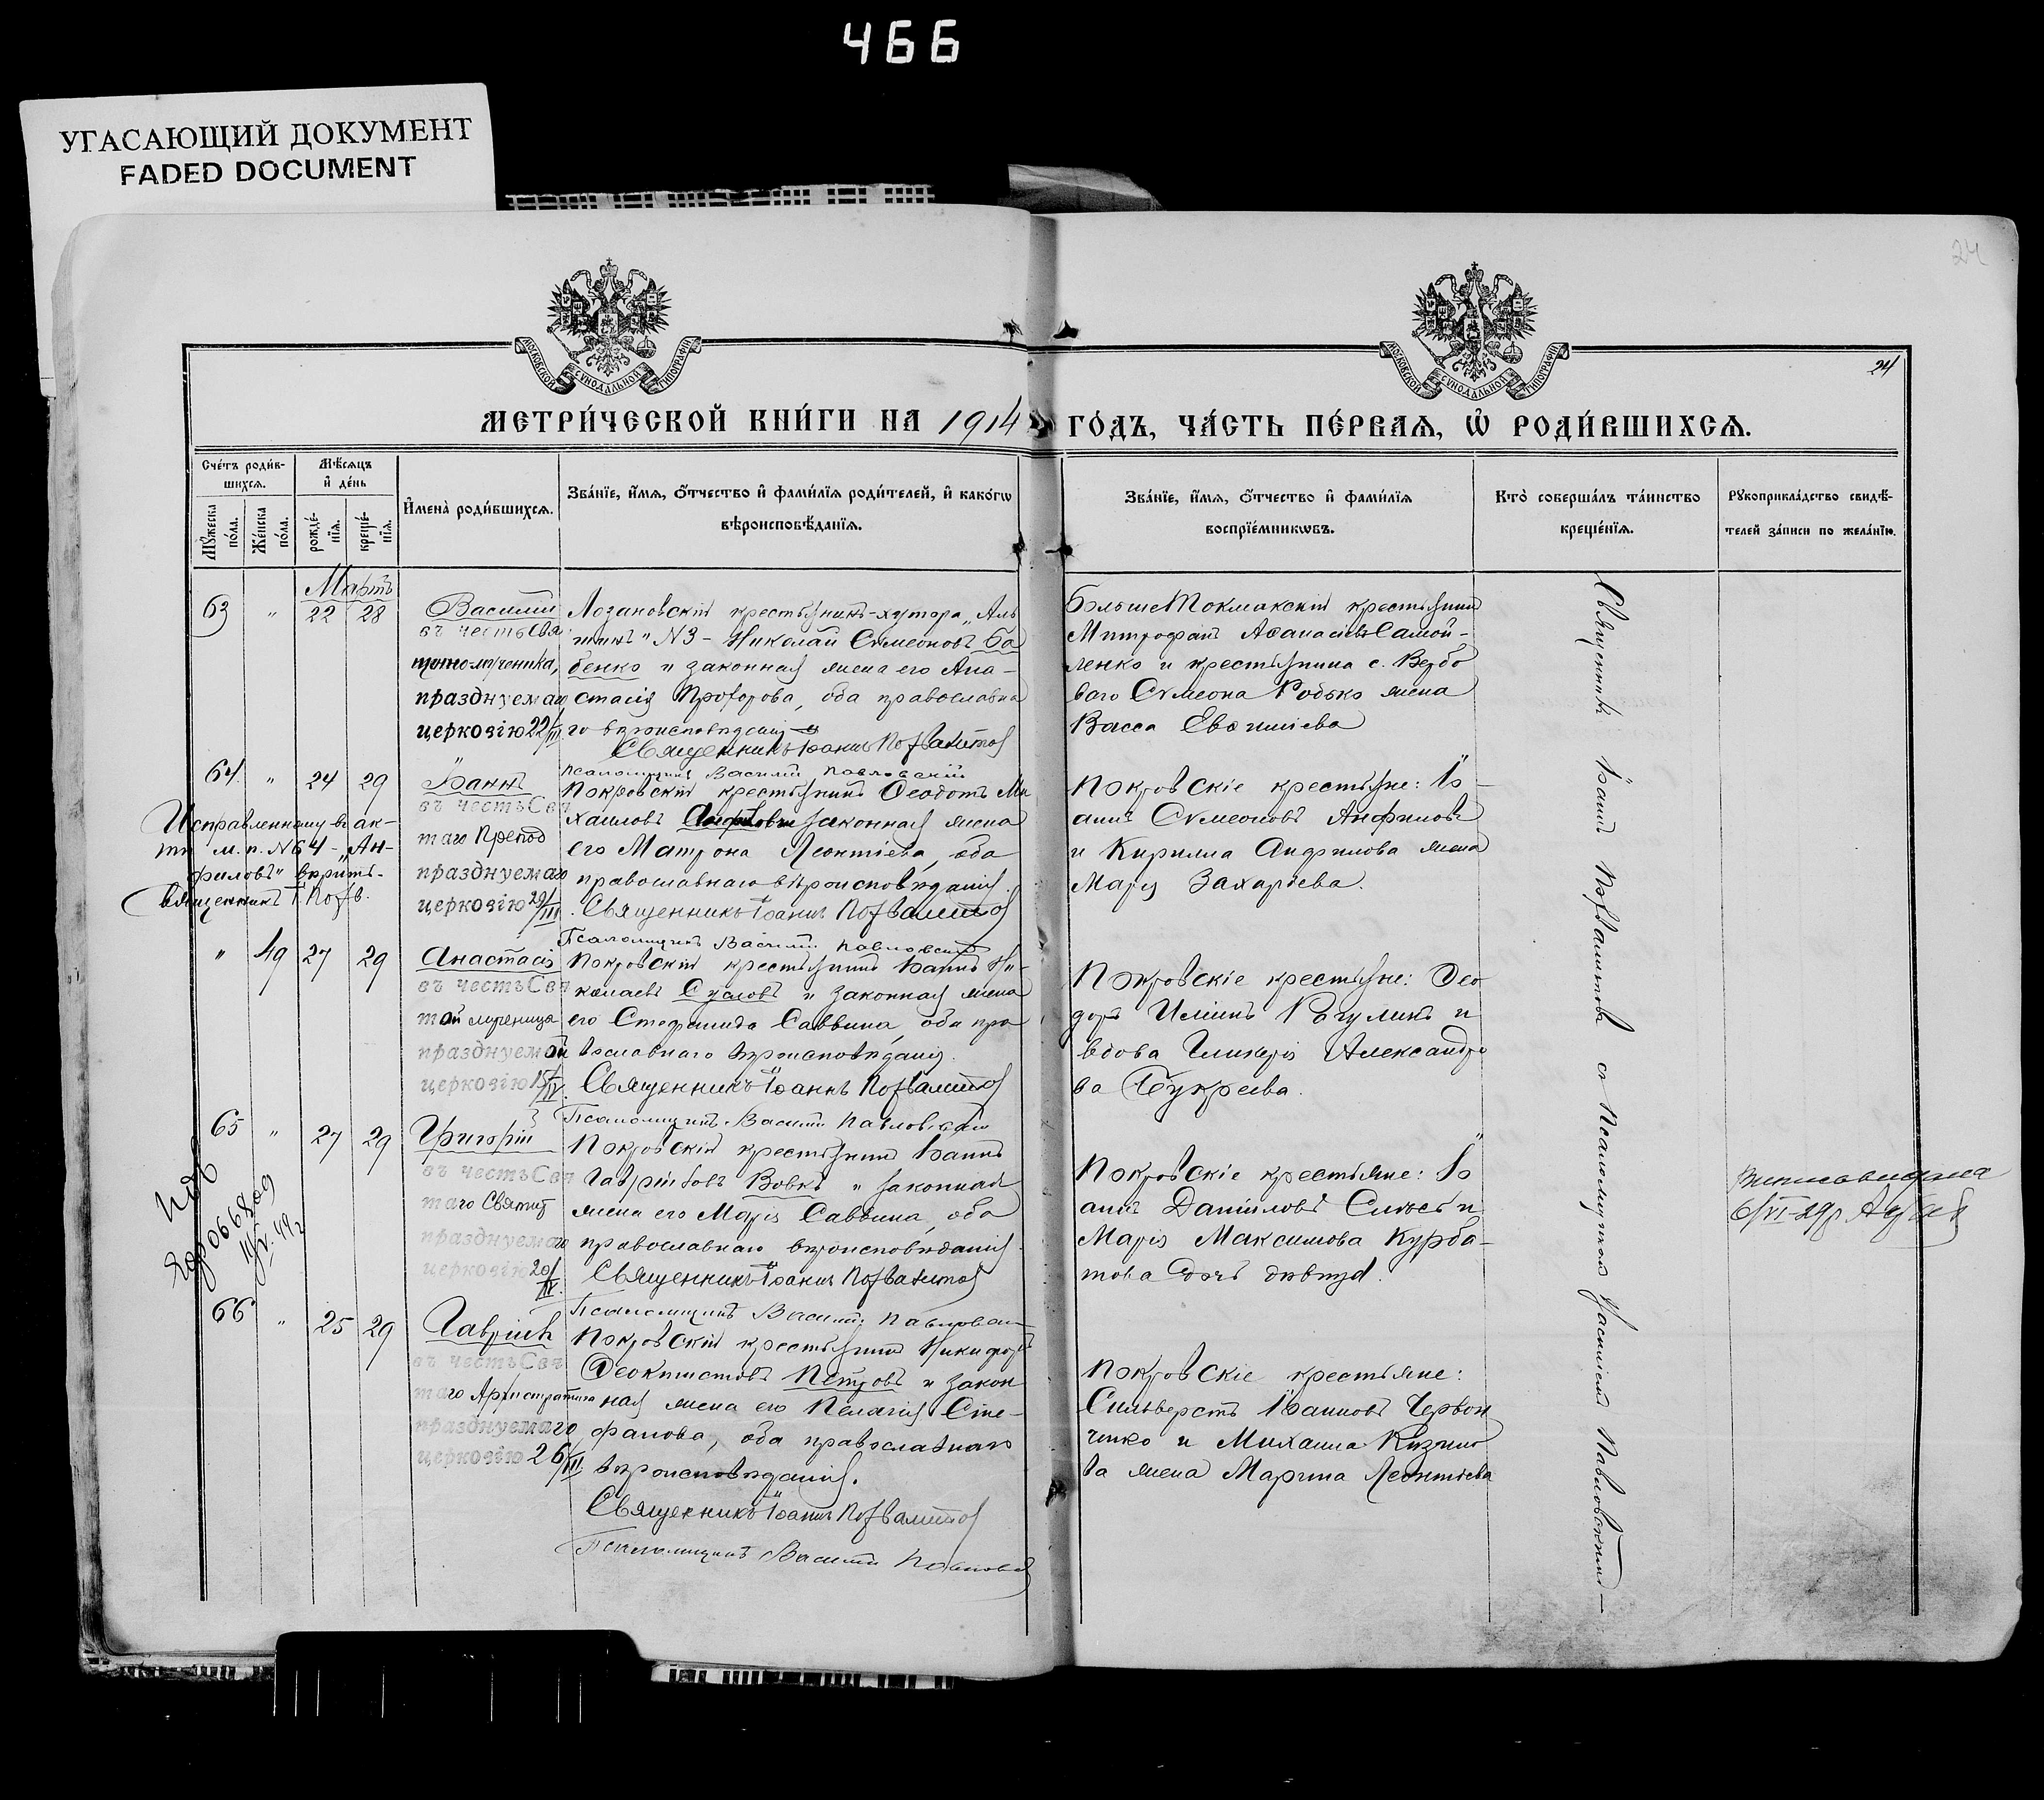 466
УГАСАЮЩИЙ ДОКУМЕНТ
FADED DOCUMENT
24
МОСКОВСКОЙ СѴНОДАЛЬНОЙ ТИПОГРАФІИ
МОСКОВСКОЙ СѴНОДАЛЬНОЙ ТИПОГРАФІИ
24
МЕТРИ́ЧЕСКОЙ КНИ́ГИ НА 1914 ГО́ДЪ, ЧА́СТЬ ПЕ́РВАЯ, Ѡ҆ РОДИ́ВШИХСЯ.
Сче́тъ роди́вшихся.
Мꙋ́жеска по́ла.
Же́нска по́ла.
Мѣ́сяцъ и҆ де́нь
рожде́нїѧ.
креще́нїѧ.
И҆мена̀ роди́вшихся.
Зва́нїе, и҆́мя, ѻ҆́тчество и҆ фами́лїя роди́телей, и҆ како́гѡ
вѣроисповѣ́данїя.
Зва́нїе, и҆́мя, ѻ҆́тчество и҆ фами́лїя
воспрїе́мникѡвъ.
Кто̀ соверша́лъ та́инство
креще́нїя.
Рꙋкоприкла́дство свидѣ́-
телей за́писи по жела́нїю.
Мартъ
63 " 22 28
Василій
въ честь Свя
щенномученика,
празднуемаго
церковію 22/III
Лозановскій крестьянинъ-хутора „Аль
№ 3 - Николай Симеоновъ Ба
бенко и законная жена его Ана-
стасія Прохорова, оба православна
го вѣроисповѣданія
Священникъ Іоаннъ
Псаломщикъ Василій Павловскій
БольшеТокмакскій крестьянинъ
Митрофанъ Аѳанасіевъ Самой-
ленко и крестьянина с. Вербо
ваго Симеона Родько жена
Васса Евѳиміева
64. " 24 29
Іоаннъ
въ честь Свя
таго Препод
празднуемаго
церковію 29/III
Покровскій крестьянинъ Ѳеодотъ Ми
хаиловъ законная жена
его Матрона Леонтіева, оба
православнаго вѣроисповѣданія.
Священникъ Іоаннъ
Псаломщикъ Василій Павловскій
Покровскіе крестьяне: Іо-
аннъ Симеоновъ Анфиловъ
и Кирилла Анфилова жена
Марія Захаріева.
Исправленному въ ак-
тѣ м. п. № 64 - „Ан-
филовъ" вѣрить.
Священникъ І.
" 49 27 29
Анастасія
въ честь Свя
той мученица
празднуемой
церковію 15/IV.
Покровскій крестьянинъ Іоаннъ Ни-
колаевъ и законная жена
его Стефанида Саввина, оба пра
вославнаго вѣроисповѣданія.
Священникъ Іоаннъ
Псаломщикъ Василій Павловскій
Покровскіе крестьяне: Ѳео
доръ Ильинъ Рагулинъ и
вдова Гликерія Александро
ва Букреева.
65 " 27 29
Григорій
въ честь Свя
таго Святит
празднуемаго
церковію 20/IV.
Покровскій крестьянинъ Іоаннъ
Гавріиловъ Вовкъ и законная
жена его Марія Саввина, оба
православнаго вѣроисповѣданія.
Священникъ Іоаннъ
Псаломщикъ Василій Павловскій
Покровскіе крестьяне: Іо
аннъ Даніиловъ и
Марія Максимова Курба-
това дочь дѣвица.
66 " 25 29
Гавріилъ
въ честь Свя
таго Архистратига
празднуемаго
церковію 26/III.
Покровскій крестьянинъ Никифоръ
Ѳеоктистовъ Петровъ и закон
ная жена его Пелагія Сте-
фанова, оба православнаго
вѣроисповѣданія.
Священникъ Іоаннъ
Псаломщикъ Василій
Покровскіе крестьяне:
Сильверстъ Іоанновъ Червон
ченко и Михаила
жена Марина Леонтіева
Священникъ Іоаннъ съ Псаломщикомъ Василіемъ Павловскимъ —